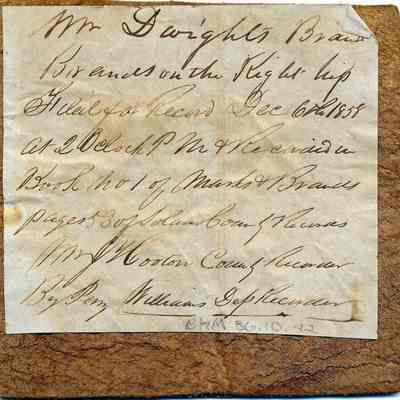 Mr Dwights Brand
Brands on the Right hip
Filed for Record Dec 6th 1858
at 2 Oclock P M & Recorded in
Book No 1 of Marks & Brands
pages 53 of Solano County Records
Wm J Hooton County Recorder
By Perry Williams Dep Recorder